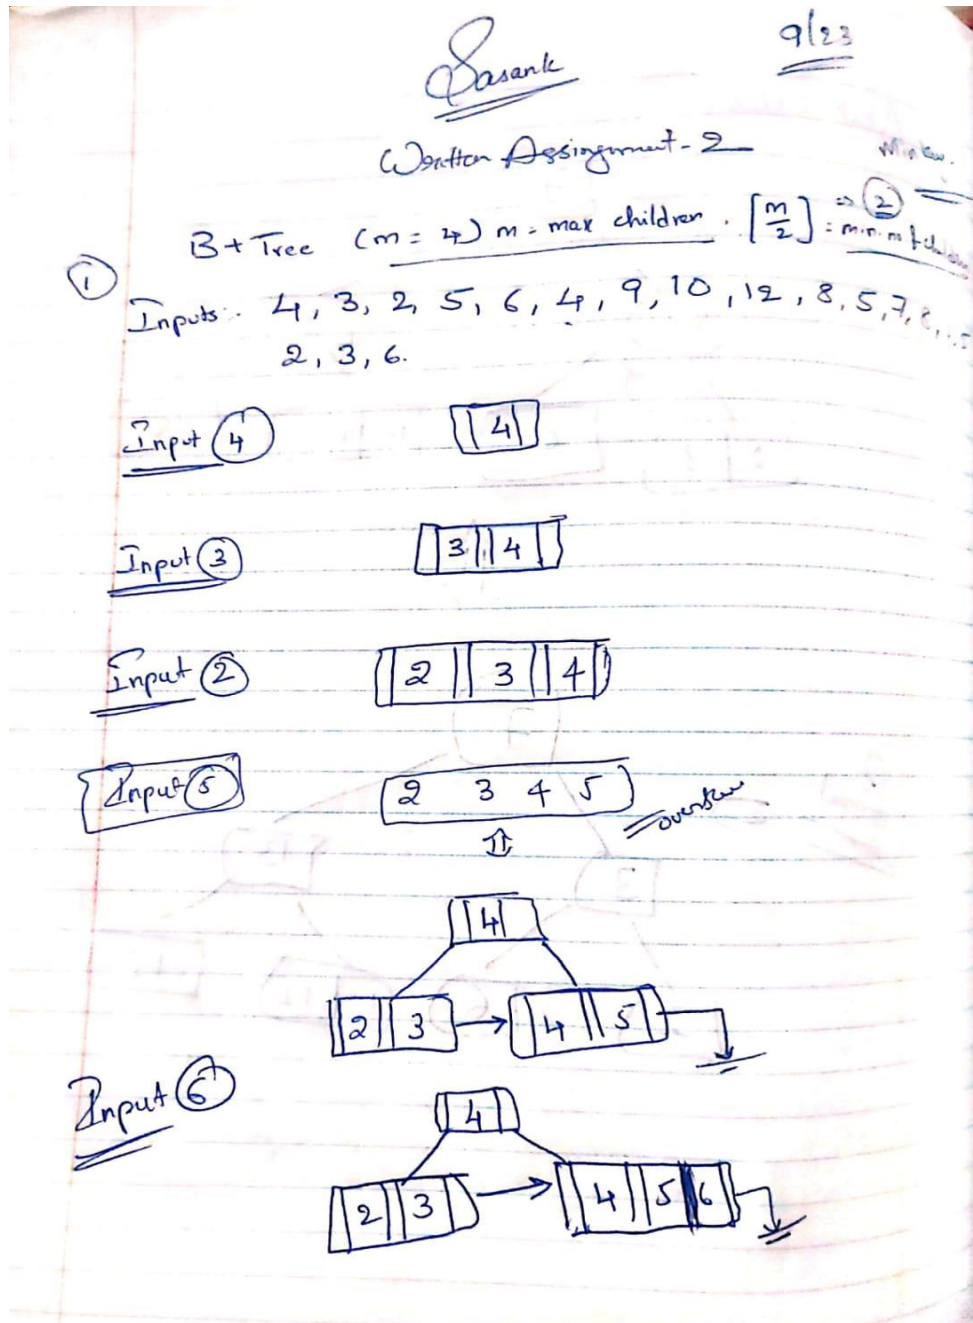 Sasank
9/23
Written Assingnment - 2
B+ Tree (m = 4) m = max children. [m/2] => 2 = min. n of children
1
Inputs:- 4, 3, 2, 5, 6, 4, 9, 10, 12, 8, 5, 7, 8,
2, 3, 6.
Input 4
4
Input 3
3 4
Input 2
2 3 4
Input 5
2 3 4 5
4
2 3 4 5
Input 6
4
2 3 4 5 6